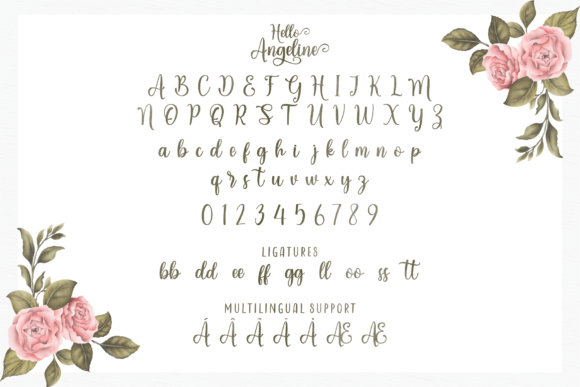 Hello
Angeline
A B C D E F G H I J K L M
N O P Q R S T U V W X Y Z
a b c d e f g h i j k l m n o p
q r s t u v w x y z
0 1 2 3 4 5 6 7 8 9
LIGATURES
bb dd ee ff gg ll oo ss tt
MULTILINGUAL SUPPORT
Á Â Ã À Å Æ Æ